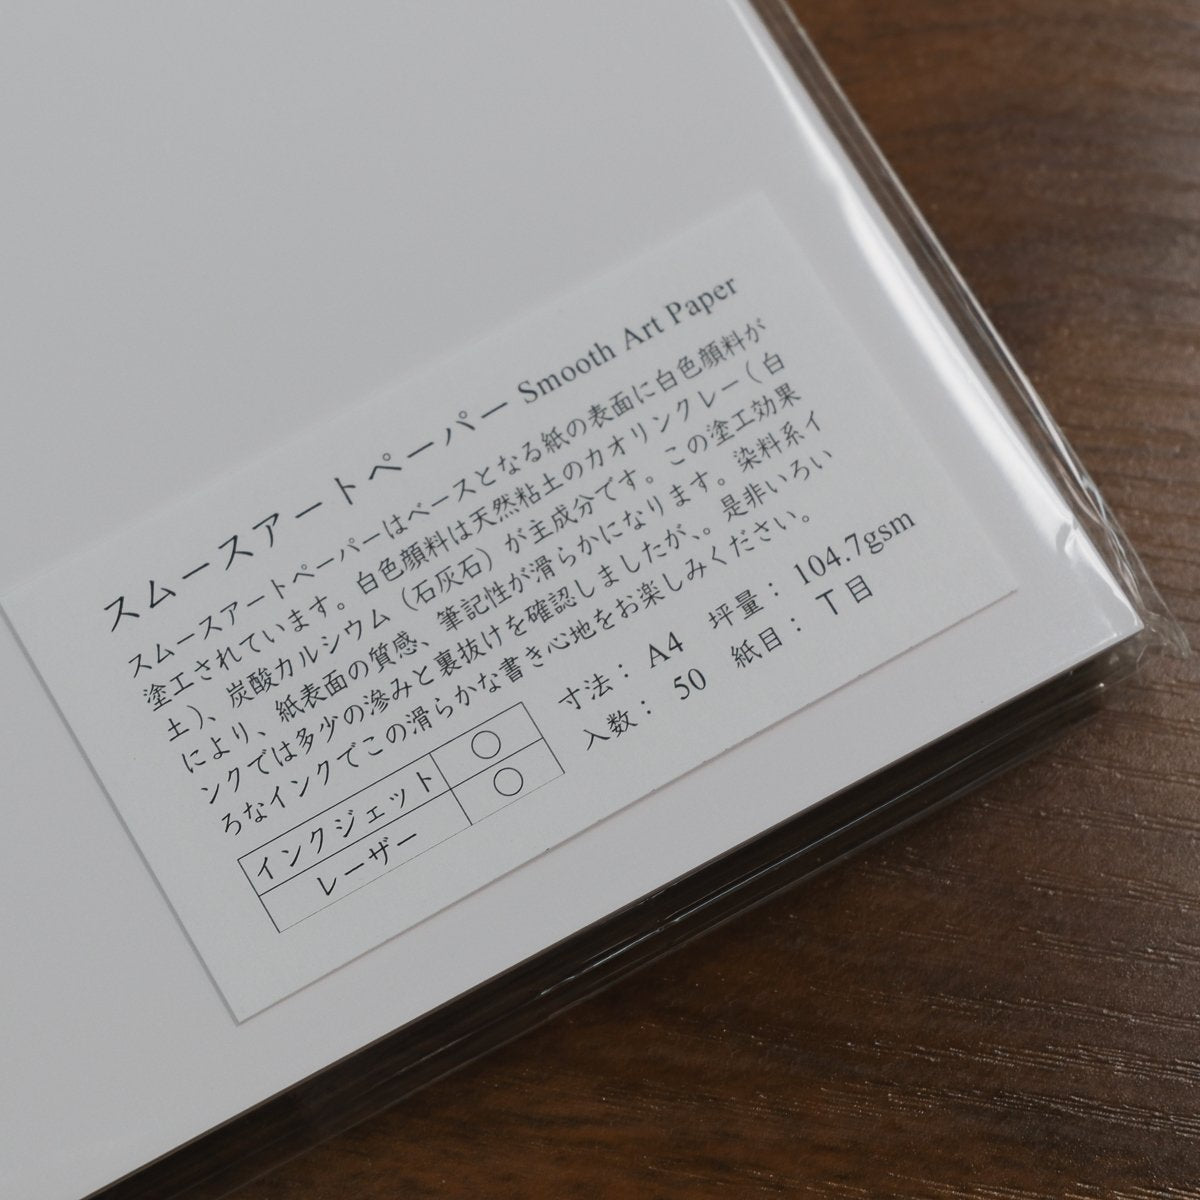 スムースアートペーパー Smooth Art Paper
スムースアートペーパーはベースとなる紙の表面に白色顔料が
塗工されています。白色顔料は天然粘土のカオリンクレー（白
土）、炭酸カルシウム（石灰石）が主成分です。この塗工効果
により、紙表面の質感、筆記性が滑らかになります。染料系イ
ンクでは多少の滲みと裏抜けを確認しましたが、。是非いろい
ろなインクでこの滑らかな書き心地をお楽しみください。
インクジェット ○
レーザー ○
寸法： A4 坪量： 104.7gsm
入数： 50 紙目： T目